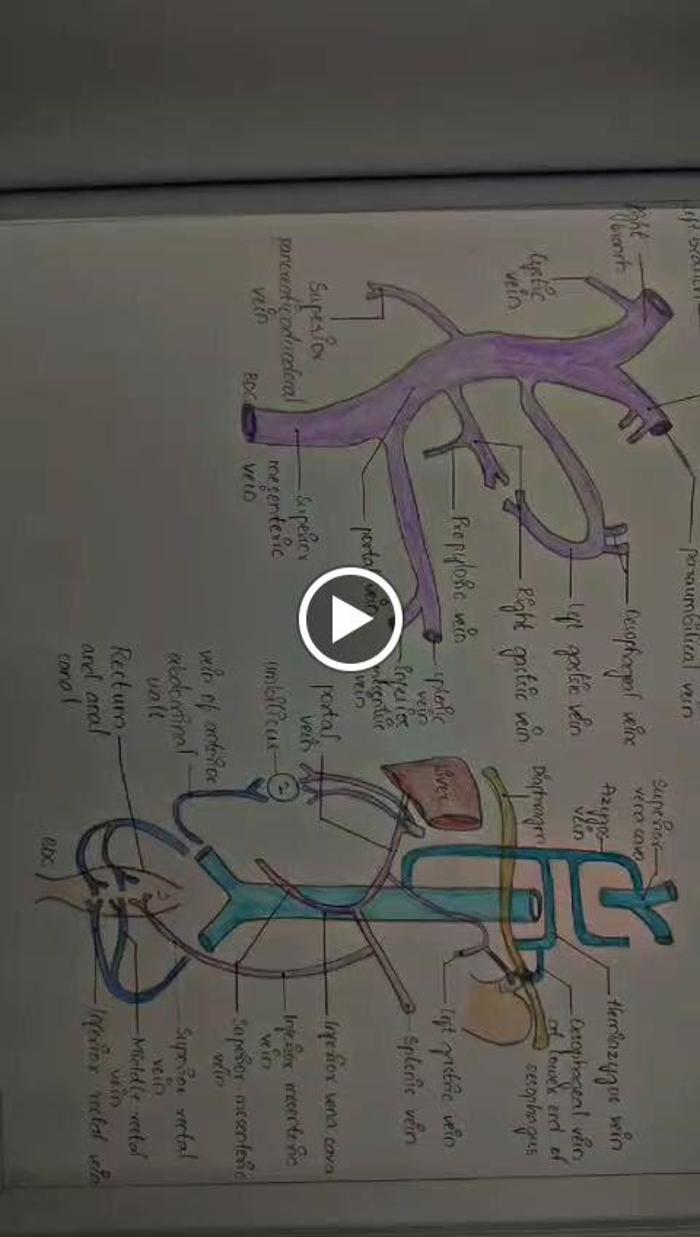 Right
branch
Cystic
vein
Superior
pancreaticoduodenal
vein
BDC
Superior
mesenteric
vein
portal vein
Prepyloric vein
Right gastric vein
left gastric vein
Oesophageal veins
paraumbilical vein
splenic
vein
vein
Superior
vena cava
Azygos
vein
Diaphragm
Liver
portal
vein
umbilicus
vein of anterior
abdominal
wall
Rectum
and anal
canal
BDC
Hemiazygos vein
Oesophageal vein
of lower end of
oesophagus
left gastric vein
splenic vein
Inferior vena cava
Inferior mesenteric
vein
Superior mesenteric
vein
Superior rectal
vein
Middle rectal
vein
Inferior rectal vein